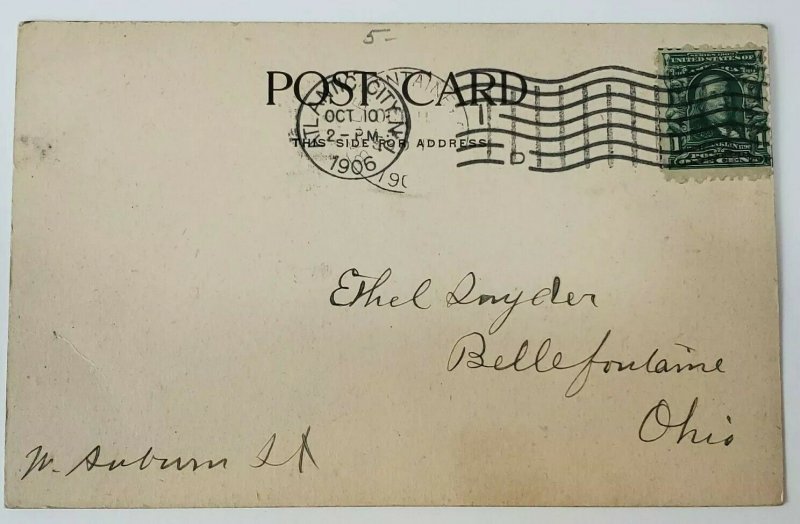 5-
POST CARD
ATLANTIC CITY, N.J.
OCT 10
2-PM
1906
THIS SIDE FOR ADDRESS
1
D
UNITED STATES OF AMERICA
FRANKLIN
POSTAGE
ONE CENT
Ethel Snyder
Bellefontaine
Ohio
W. Auburn St